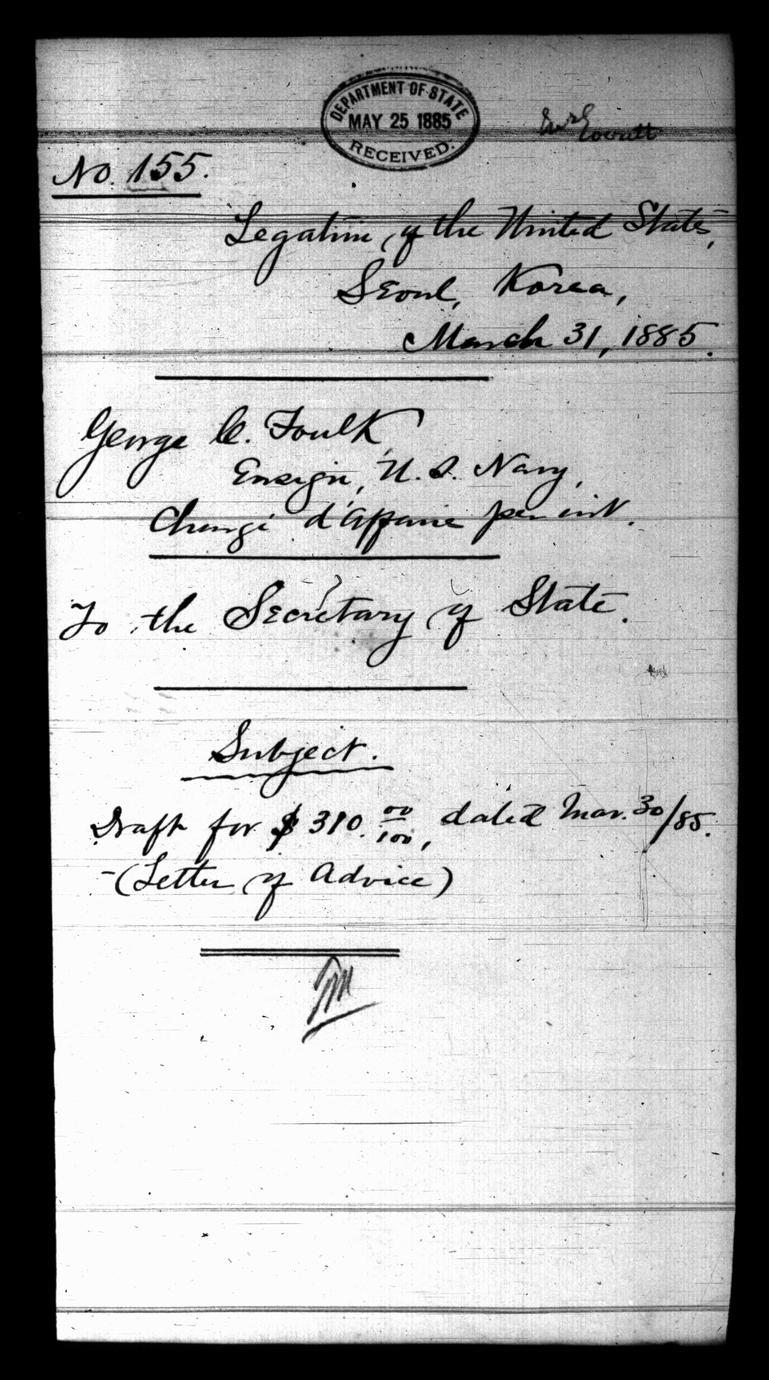 DEPARTMENT OF STATE
MAY 25 1885
RECEIVED.
No. 155.
Legation of the United States,
Seoul, Korea,
March 31, 1885.
George C. Foulk
Ensign, U.S. Navy,
Chargé d'Affaire per int.
To the Secretary of State.
Subject.
Draft for $310.00/100, dated Mar. 30/85.
-(Letter of Advice)